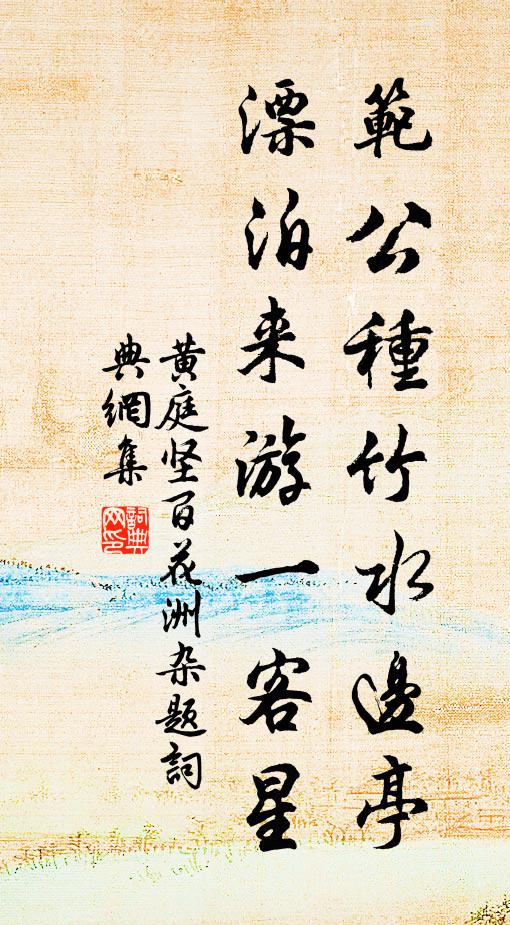 範公種竹水邊亭
漂泊来游一客星
黄庭坚百花洲杂题詞
典網集
詞典網印